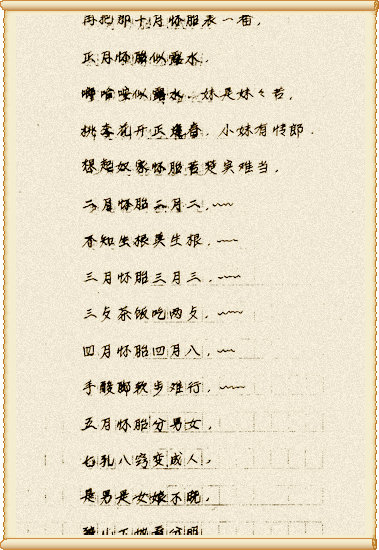 再把那十月怀胎表一番，
正月怀胎似露水。
嘟哈哎似露水，妹是妹々苦，
桃李花开正逢春，小妹有情郎．
想起奴家怀胎苦楚实难当，
二月怀胎二月二，﹏
不知生根莫生根，﹏
三月怀胎三月三，﹏
三步茶饭吃两步，﹏
四月怀胎四月八，﹏
手酸脚软步难行，﹏
五月怀胎分男女，
七孔八窍变成人，
是男是女娘不晓，